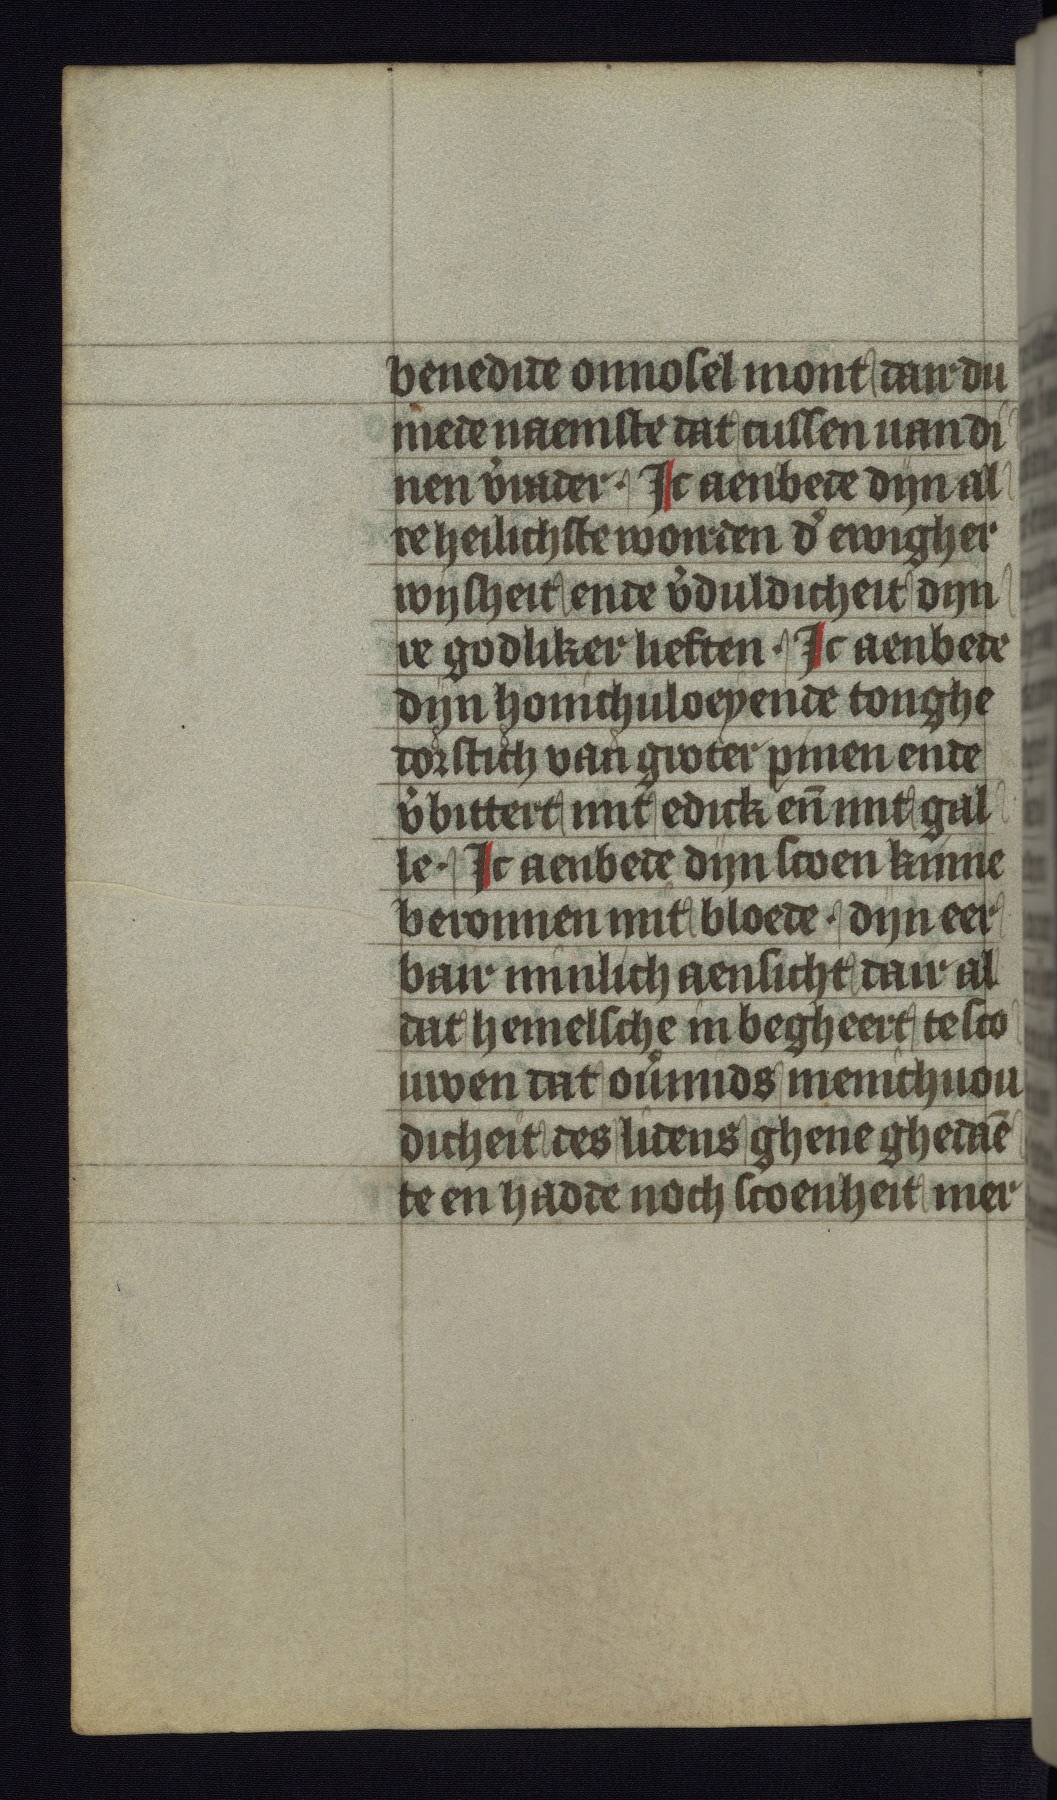 benedide onnosel mont dair du
mede naemste dat cussen uan di
nen v̉rader. Ic aenbede dijn al
re heilichste worden d̉ ewigher
wijsheit ende v̉duldicheit dijn
re godliker lieften. Ic aenbede
dijn honichuloeyende tonghe
dorstich van groter pinen ende
v̉bittert mit edick en̄ mit gal
le. Ic aenbede dijn scoen kinne
beronnen mit bloede. dijn eer
bair minlich aensicht dair al
dat hemelsche in begheert te sco
uwen dat oủmids menichuou
dicheit des lidens ghene ghedaē
te en hadde noch scoenheit mer